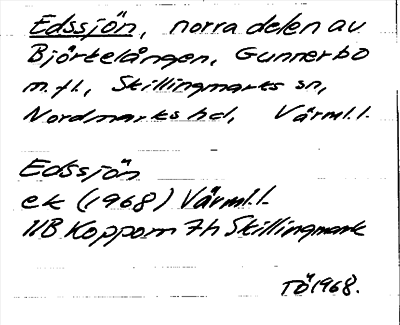 Edssjön, norra delen av
Björtelången, Gunnerbo
m.fl., Skillingmarks sn,
Nordmarks hd, Värml.l.
Edssjön
ek (1968) Värml.l.
11B Koppom 7h Skillingmark
TÖ 1968.